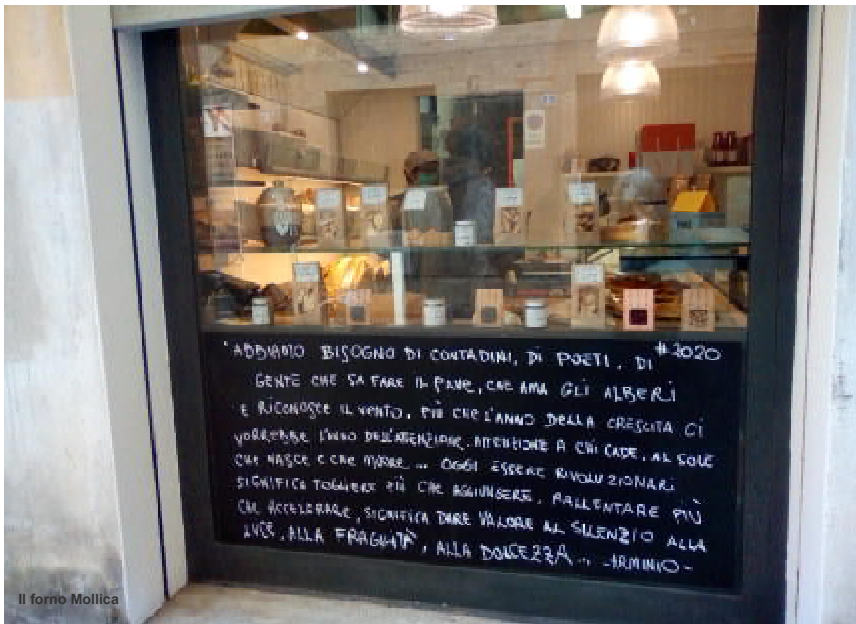 #2020
"ABBIAMO BISOGNO DI CONTADINI, DI POETI, DI
GENTE CHE SA FARE IL PANE, CHE AMA GLI ALBERI
E RICONOSCE IL VENTO. PIÙ CHE L'ANNO DELLA CRESCITA CI
VORREBBE L'ANNO DELL'ATTENZIONE. ATTENZIONE A CHI CADE, AL SOLE
CHE NASCE E CHE MUORE... OGGI ESSERE RIVOLUZIONARI
SIGNIFICA TOGLIERE PIÙ CHE AGGIUNGERE, RALLENTARE PIÙ
CHE ACCELERARE, SIGNIFICA DARE VALORE AL SILENZIO ALLA
LUCE, ALLA FRAGILITÀ, ALLA DOLCEZZA... -ARMINIO-
Il forno Mollica